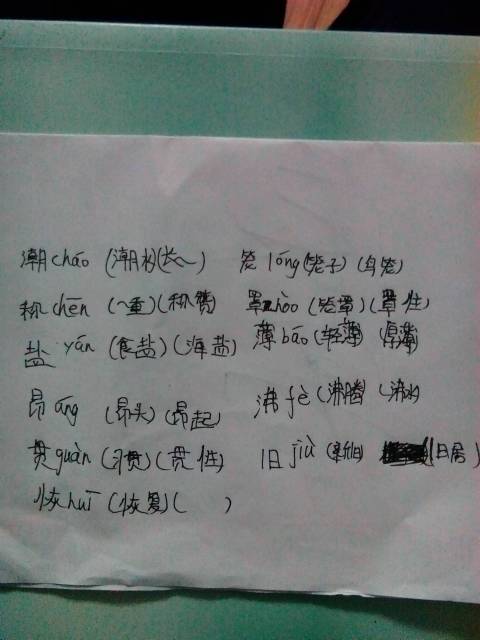 潮 cháo (潮水)(长～) 笼 lóng (笼子) (鸟笼)
称 chēn (～重)(称赞) 罩 zhào (笼罩)(罩住)
盐 yán (食盐)(海盐) 薄 báo (轻薄) (厚薄)
昂 áng (昂头) (昂起) 沸 fè (沸腾) (沸水)
贯 guàn (习贯) (贯性) 旧 jiù (新旧) (旧居)
恢 huī (恢复) ( )